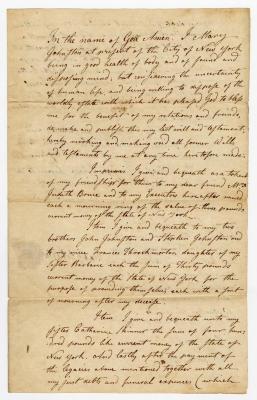 In the name of God Amen. I Mary
Johnston at present of the City of New York
being in good health of body and of sound and
disposing mind; but considering the uncertainty
of human life, and being willing to dispose of the
worldly estate with which it has pleased God to bless
me for the benefit of my relations and friends,
do make and publish this my last will and testament,
hereby revoking and making void all former Wills
and testaments by me at any time heretofore made.
Imprimis I give and bequeath as a token
of my friendship for them to my dear friend Mrs
Judith Bruce and to my Executors hereafter named
each a mourning ring of the value of three pounds
current money of the State of New York.
Item I give and bequeath to my two
brothers John Johnston and Heathcote Johnston and
to my niece Frances Throckmorton, daughter of my
sister Barbarie each the sum of Thirty pounds
current money of the State of New York for the
purpose of providing themselves each with a suit
of mourning after my decease.
Item I give and bequeath unto my
sister Catharine Skinner the sum of four hun-
dred pounds like current money of the State of
New York. And lastly after the payment of
the legacies above mentioned together with all
my just debts and funeral expences (which